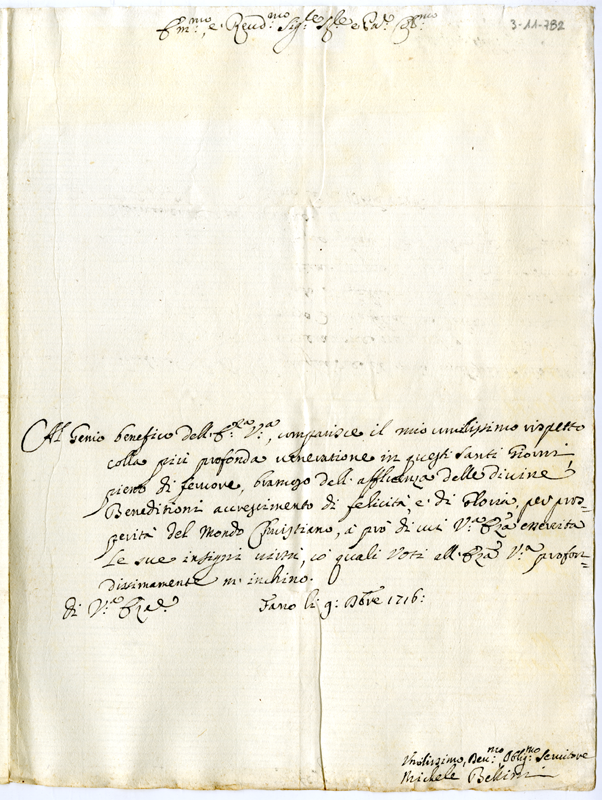 3-11-782
Em.mo, e Reud.mo Sig.re, e Pad.
Al Genio benefico dell' E.za V.a, comparisce il mio umilissimo rispetto
colla più profonda veneratione in questi Santi Giorni
pieno di fervore, bramoso dell' affluenza delle divine
Beneditioni accrescimento di felicità, e di Gloria, per pros=
perità del Mondo Christiano, à prò di cui V.a Eza esercita
le sue insigni virtù, co' quali voti all' Eza V.a profon=
dissimamente m' inchino.
di V.a Eza. Fano li 9: Xbre 1716:
Vmilissimo, Deu.mo, Oblig.mo Servitore
Michele Bellini